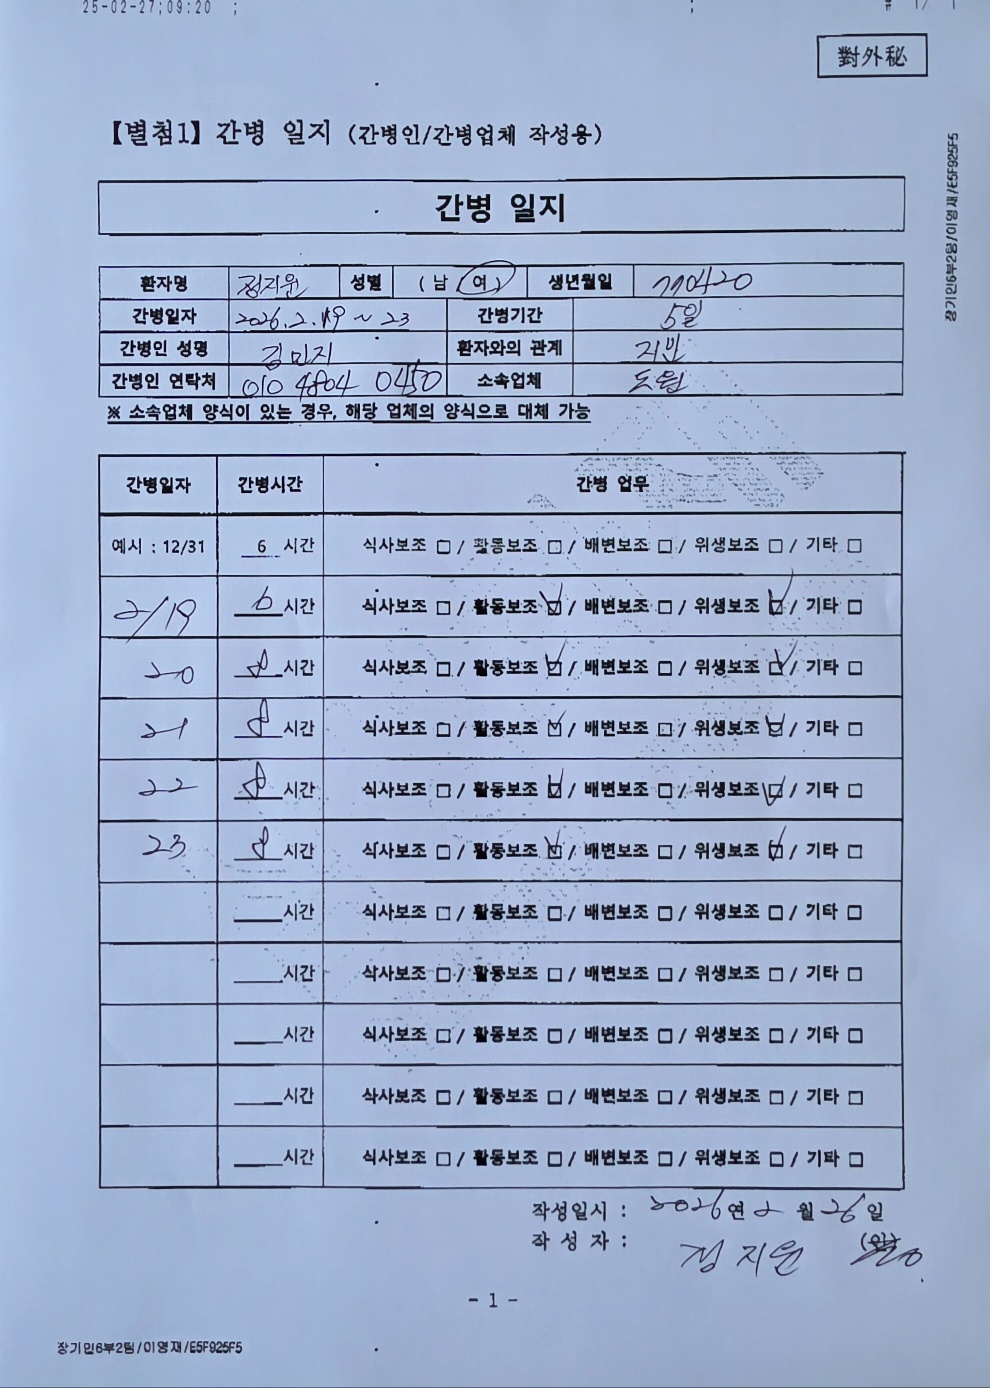 25-02-27;09:20 ;
;
# 1/ 1
對外秘
【별첨1】 간병 일지 (간병인/간병업체 작성용)
장기인6부2팀/이영재/E5F925F5
간병 일지
환자명 정지원 성별 (남 여) 생년월일 770420
간병일자 2026.2.19 ~ 23 간병기간 5일
간병인 성명 김민지 환자와의 관계 지인
간병인 연락처 010 4804 0450 소속업체 도원
※ 소속업체 양식이 있는 경우, 해당 업체의 양식으로 대체 가능
간병일자 간병시간 간병 업무
예시 : 12/31 6 시간 식사보조 □ / 활동보조 □ / 배변보조 □ / 위생보조 □ / 기타 □
2/19 6 시간 식사보조 □ / 활동보조 ☑ / 배변보조 □ / 위생보조 ☑ / 기타 □
20 8 시간 식사보조 □ / 활동보조 ☑ / 배변보조 □ / 위생보조 ☑ / 기타 □
21 8 시간 식사보조 □ / 활동보조 ☑ / 배변보조 □ / 위생보조 ☑ / 기타 □
22 8 시간 식사보조 □ / 활동보조 ☑ / 배변보조 □ / 위생보조 ☑ / 기타 □
23 8 시간 식사보조 □ / 활동보조 ☑ / 배변보조 □ / 위생보조 ☑ / 기타 □
시간 식사보조 □ / 활동보조 □ / 배변보조 □ / 위생보조 □ / 기타 □
시간 식사보조 □ / 활동보조 □ / 배변보조 □ / 위생보조 □ / 기타 □
시간 식사보조 □ / 활동보조 □ / 배변보조 □ / 위생보조 □ / 기타 □
시간 식사보조 □ / 활동보조 □ / 배변보조 □ / 위생보조 □ / 기타 □
시간 식사보조 □ / 활동보조 □ / 배변보조 □ / 위생보조 □ / 기타 □
작성일시 : 2026 연 2 월 26 일
작 성 자 : 정지원 (인)
- 1 -
장기인6부2팀/이영재/E5F925F5